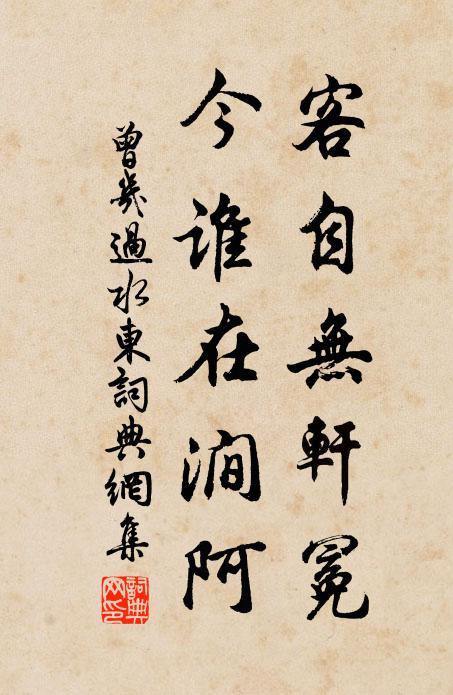 客自無軒冕
今誰在澗阿
曾幾過水東詞典網集
詞典網印